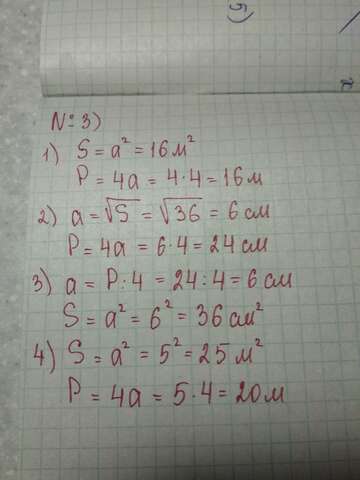 5)
№ 3)
1) S = a² = 16 м²
P = 4a = 4·4 = 16 м
2) a = √S = √36 = 6 см
P = 4a = 6·4 = 24 см
3) a = P : 4 = 24 : 4 = 6 см
S = a² = 6² = 36 см²
4) S = a² = 5² = 25 м²
P = 4a = 5·4 = 20 м